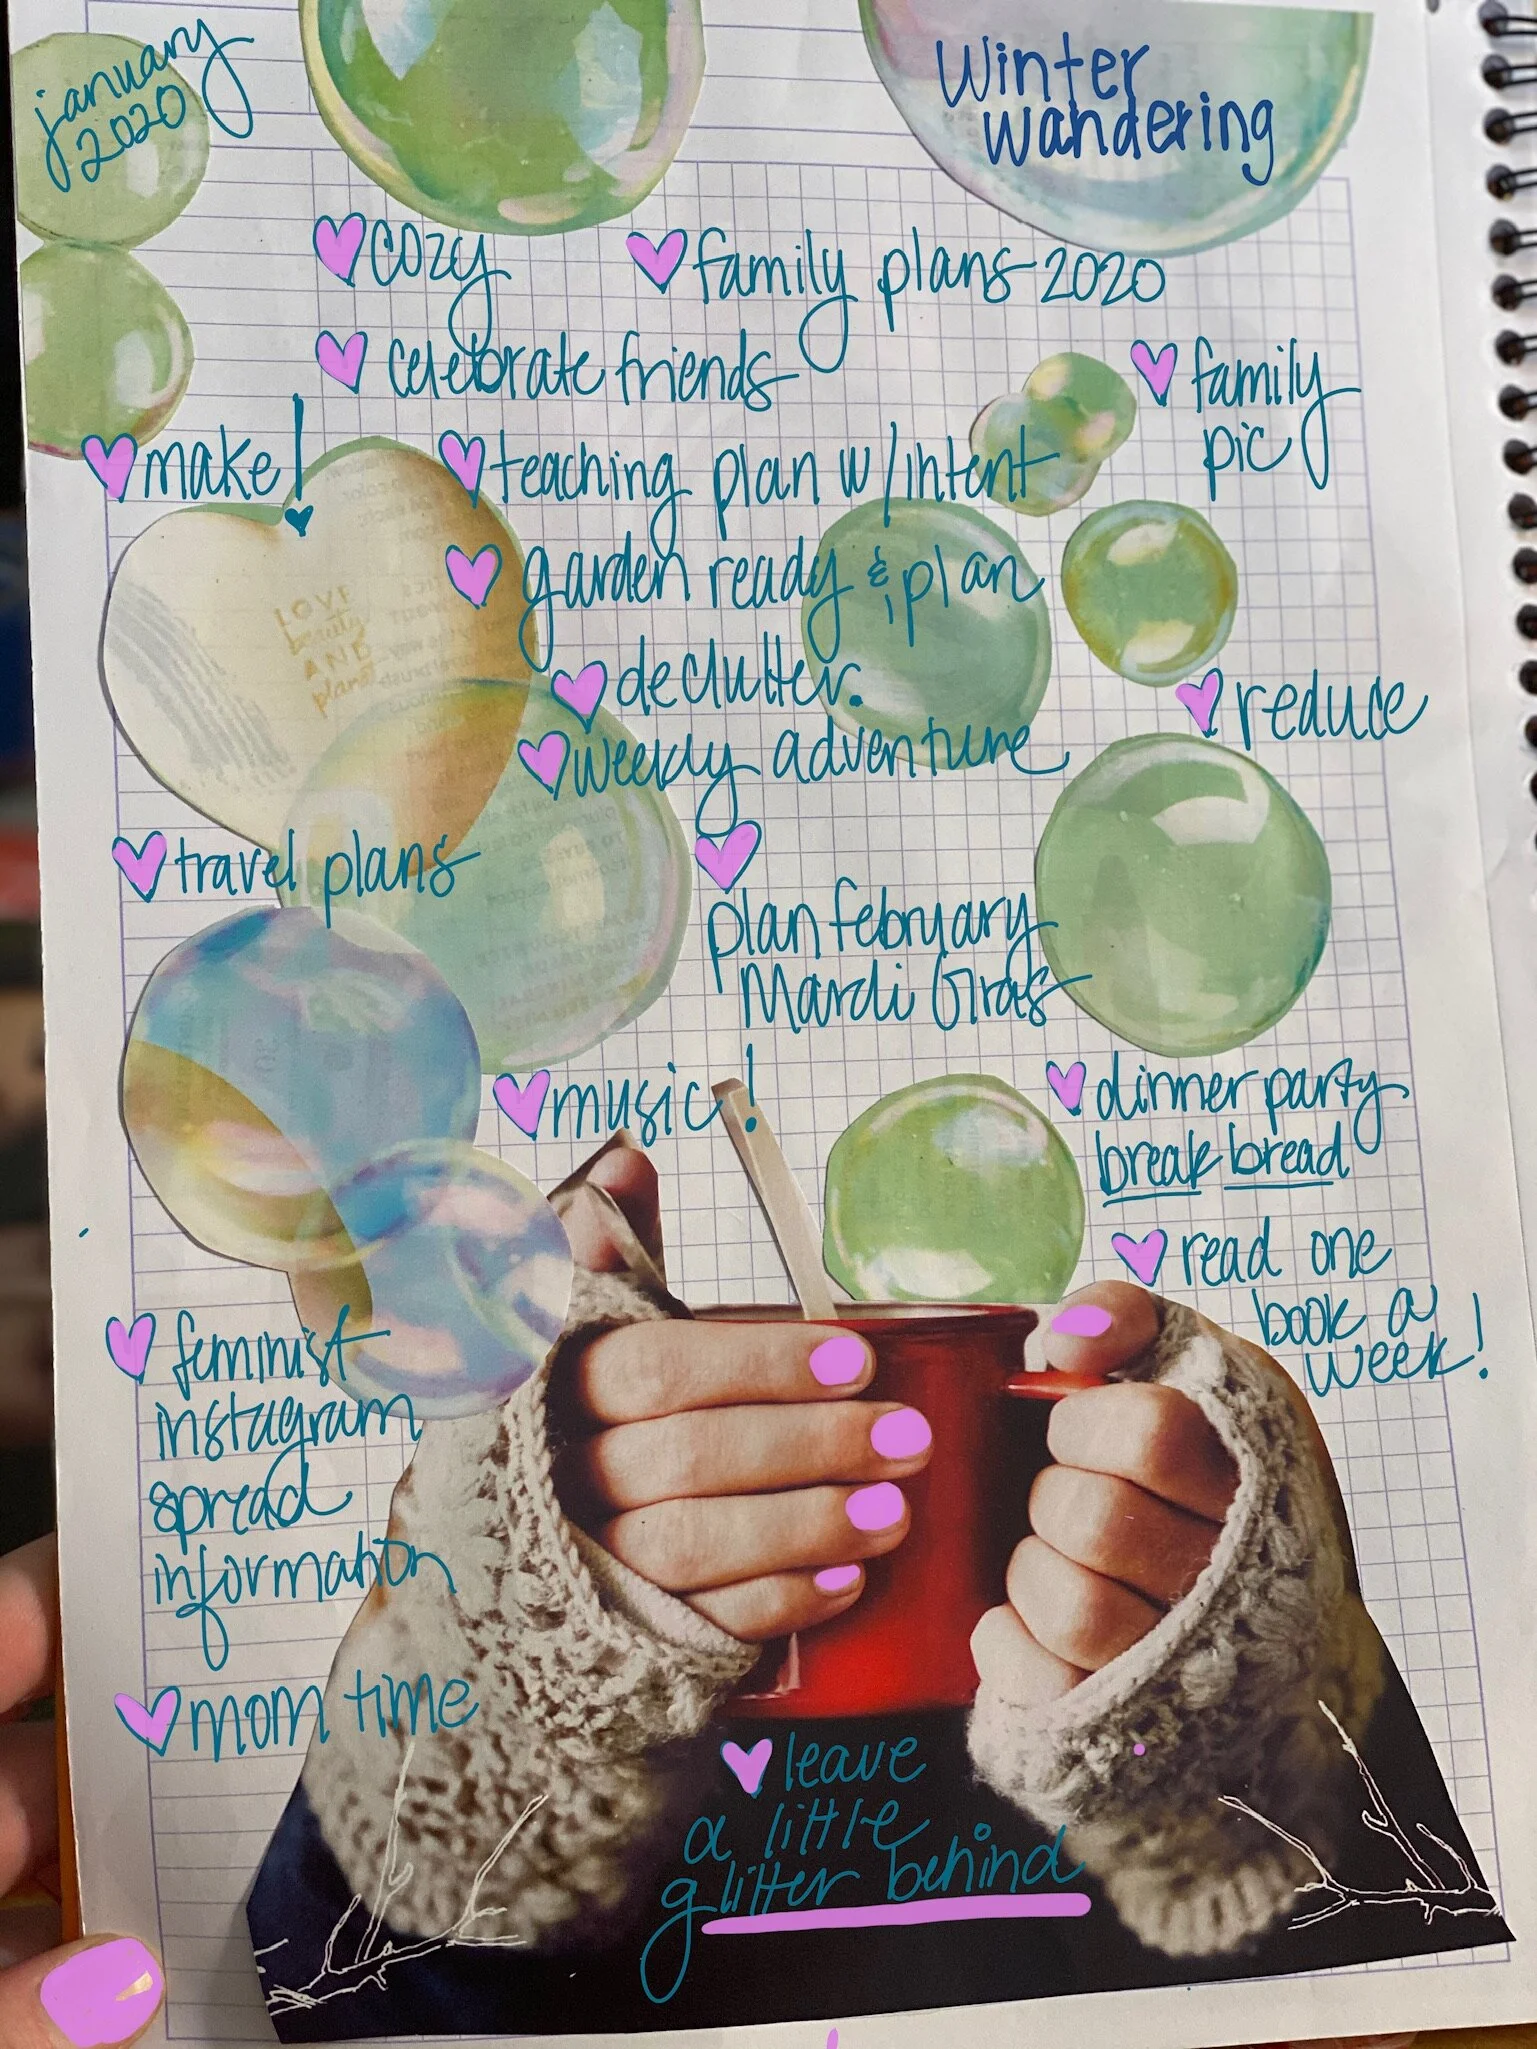 january
2020
Winter
wandering
cozy
family plans 2020
celebrate friends
family
pic
make!
teaching plan w/intent
garden ready & plan
LOVE
beauty
AND
planet
declutter.
reduce
weekly adventure
travel plans
plan february
Mardi Gras
music!
dinner party
break bread
read one
book a
week!
feminist
instagram
spread
information
mom time
leave
a little
glitter behind